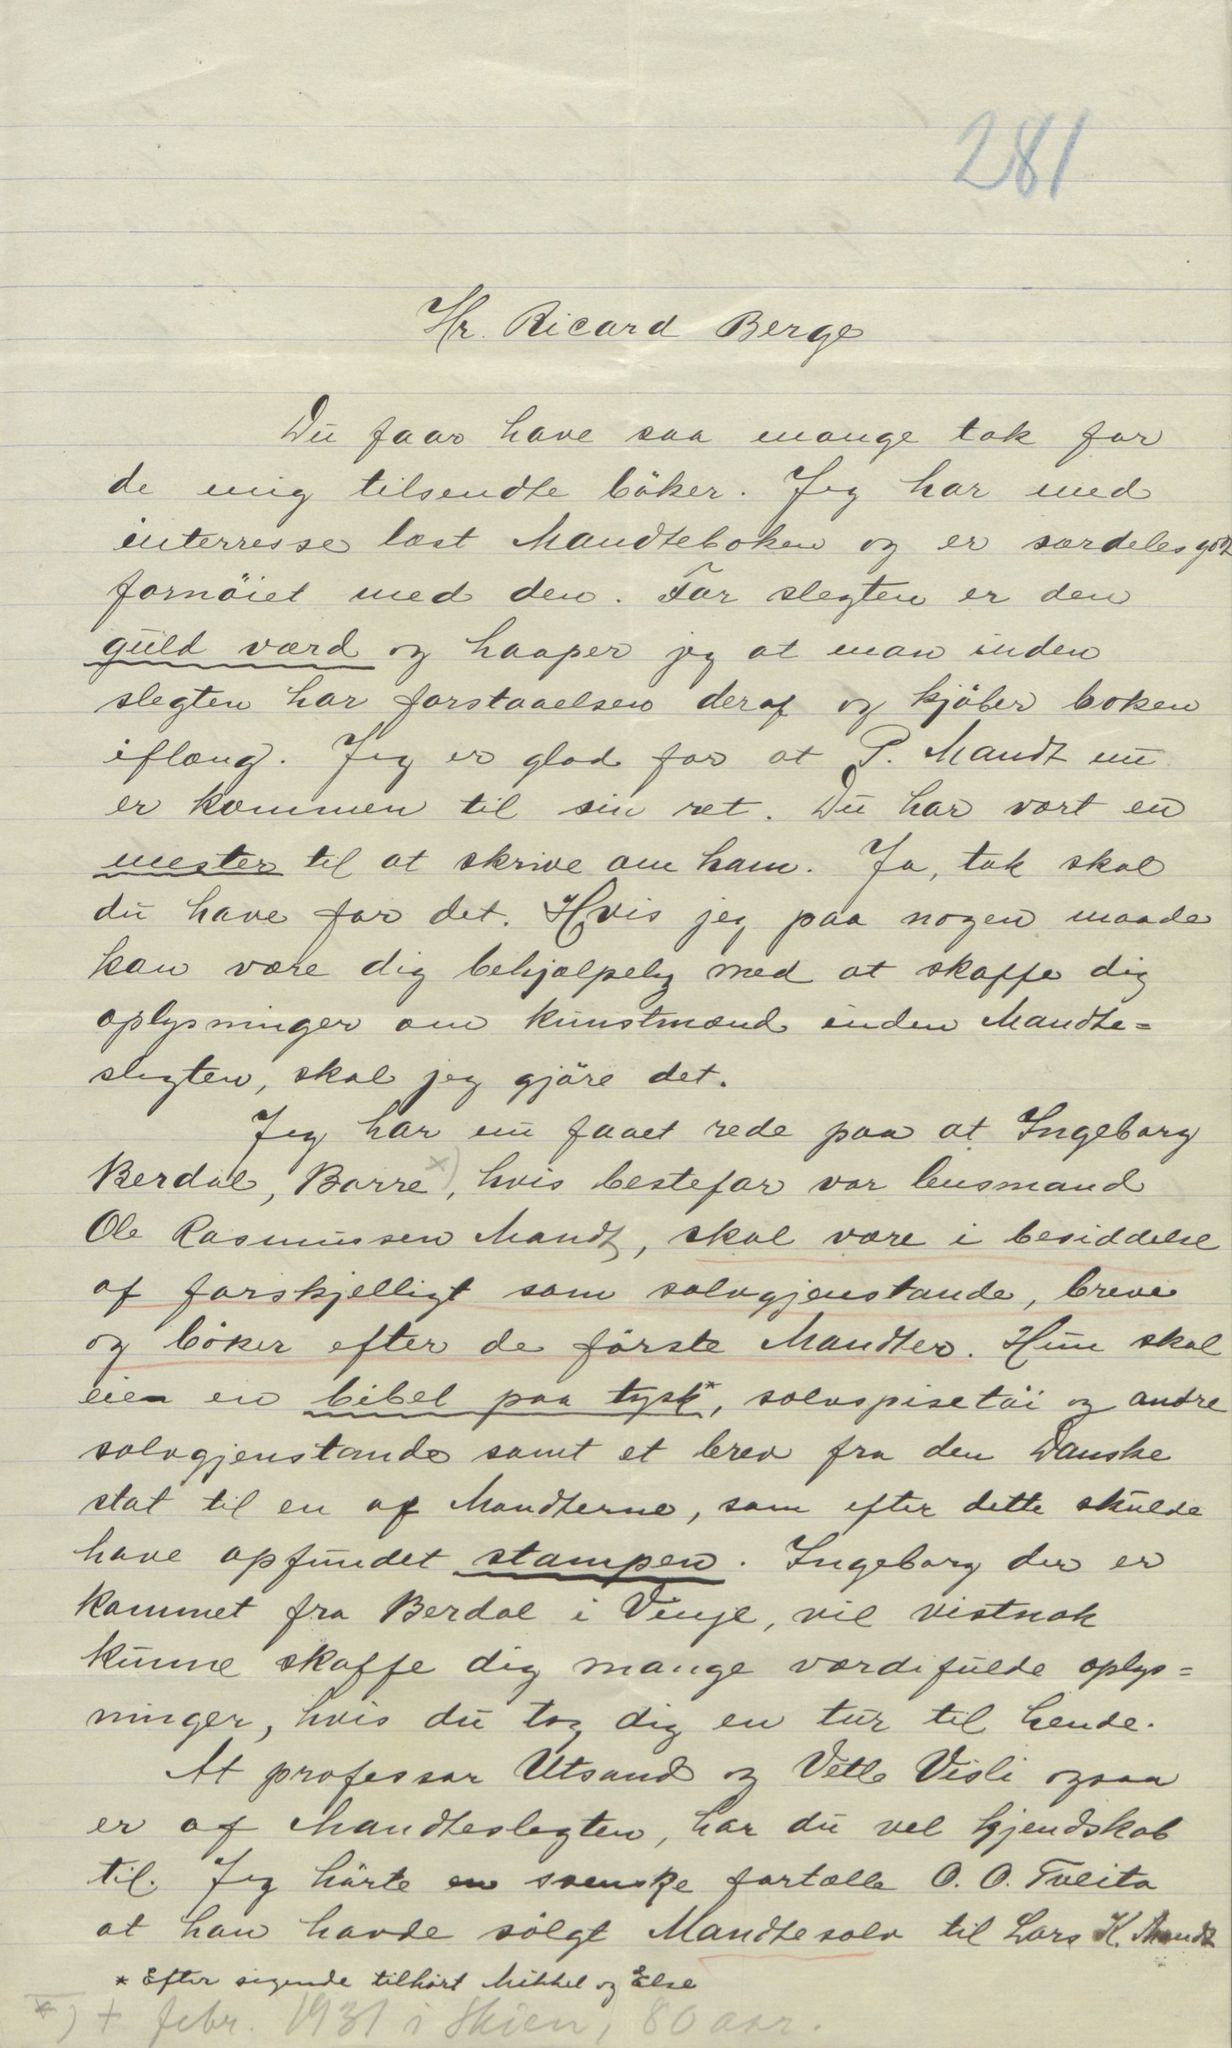 281
Hr. Ricard Berge
Du faar have saa mange tak for
de mig tilsendte böker. Jeg har med
interresse læst Mandteboken og er særdeles godt
fornöiet med den. For slegten er den
guld værd og haaper jeg at man inden
slegten har forstaaelsen deraf og kjöber boken
iflæng. Jeg er glad for at P. Mandt nu
er kommen til sin ret. Du har vært en
mester til at skrive om ham. Ja, tak skal
du have for det. Hvis jeg paa nogen maade
kan være dig behjælpelig med at skaffe dig
oplysninger om kunstmænd inden Mandte=
slegten, skal jeg gjöre det.
Jeg har nu faaet rede paa at Ingeborg
Berdal, Borre x), hvis bestefar var lensmand
Ole Rasmussen Mandt, skal være i besiddelse
af forskjelligt som sølvgjenstande, breve
og böker efter de förste Mandter. Hun skal
eie en bibel paa tysk*, sølvspisetöi og andre
sølvgjenstande samt et brev fra den Danske
stat til en af Mandterne, som efter dette skulde
have opfundet stampen. Ingeborg der er
kommet fra Berdal i Vinje, vil vistnok
kunne skaffe dig mange værdifulde oplys=
ninger, hvis du tog dig en tur til hende.
At professor Utsand og Vetle Visli ogsaa
er af Mandteslegten, har du vel kjendskab
til. Jeg hörte en svenske fortælle O. O. Tveito
at han havde sölgt Mandtesølv til Lars K. Mandt
* Efter sigende tilhørt Mikkel og Else
x) + febr. 1931 i Skien, 80 aar.